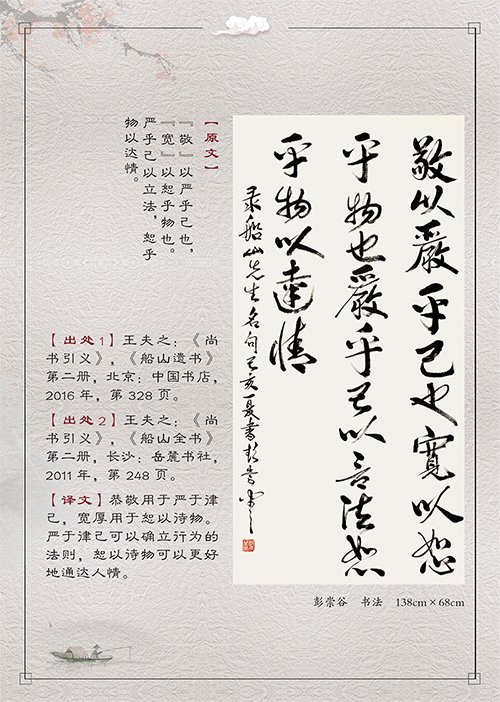 敬以嚴乎己也寬以恕
乎物也嚴乎己以立法恕
乎物以達情
录船山先生名句己亥夏書彭崇谷
彭崇谷 书法 138cm×68cm
【原文】
『敬』以严乎己也，
『宽』以恕乎物也。
严乎己以立法，恕乎
物以达情。
【出处1】王夫之：《尚
书引义》，《船山遗书》
第二册，北京：中国书店，
2016 年，第 328 页。
【出处2】王夫之：《尚
书引义》，《船山全书》
第二册，长沙：岳麓书社，
2011 年，第 248 页。
【译文】恭敬用于严于律
己，宽厚用于恕以待物。
严于律己可以确立行为的
法则，恕以待物可以更好
地通达人情。